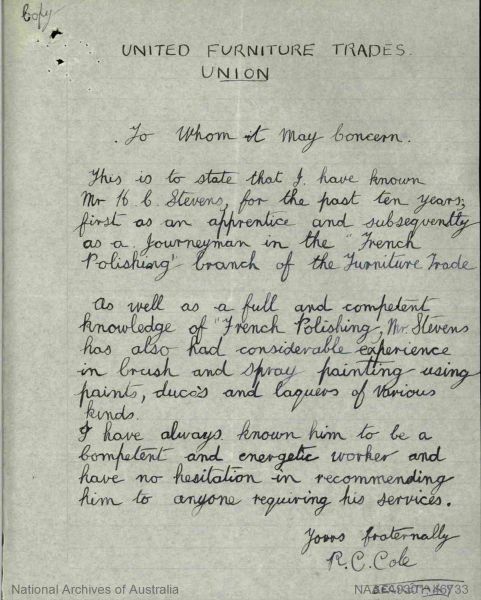 Copy
UNITED FURNITURE TRADES.
UNION
To Whom it May Concern.
This is to state that I have known
Mr H. C. Stevens, for the past ten years,
first as an apprentice and subsequently
as a Journeyman in the "French
Polishing" branch of the Furniture Trade
As well as a full and competent
knowledge of "French Polishing", Mr. Stevens
has also had considerable experience
in brush and spray painting using
paints, duco's and laquers of various
kinds.
I have always known him to be a
competent and energetic worker and
have no hesitation in recommending
him to anyone requiring his services.
Yours fraternally
R. C. Cole
National Archives of Australia